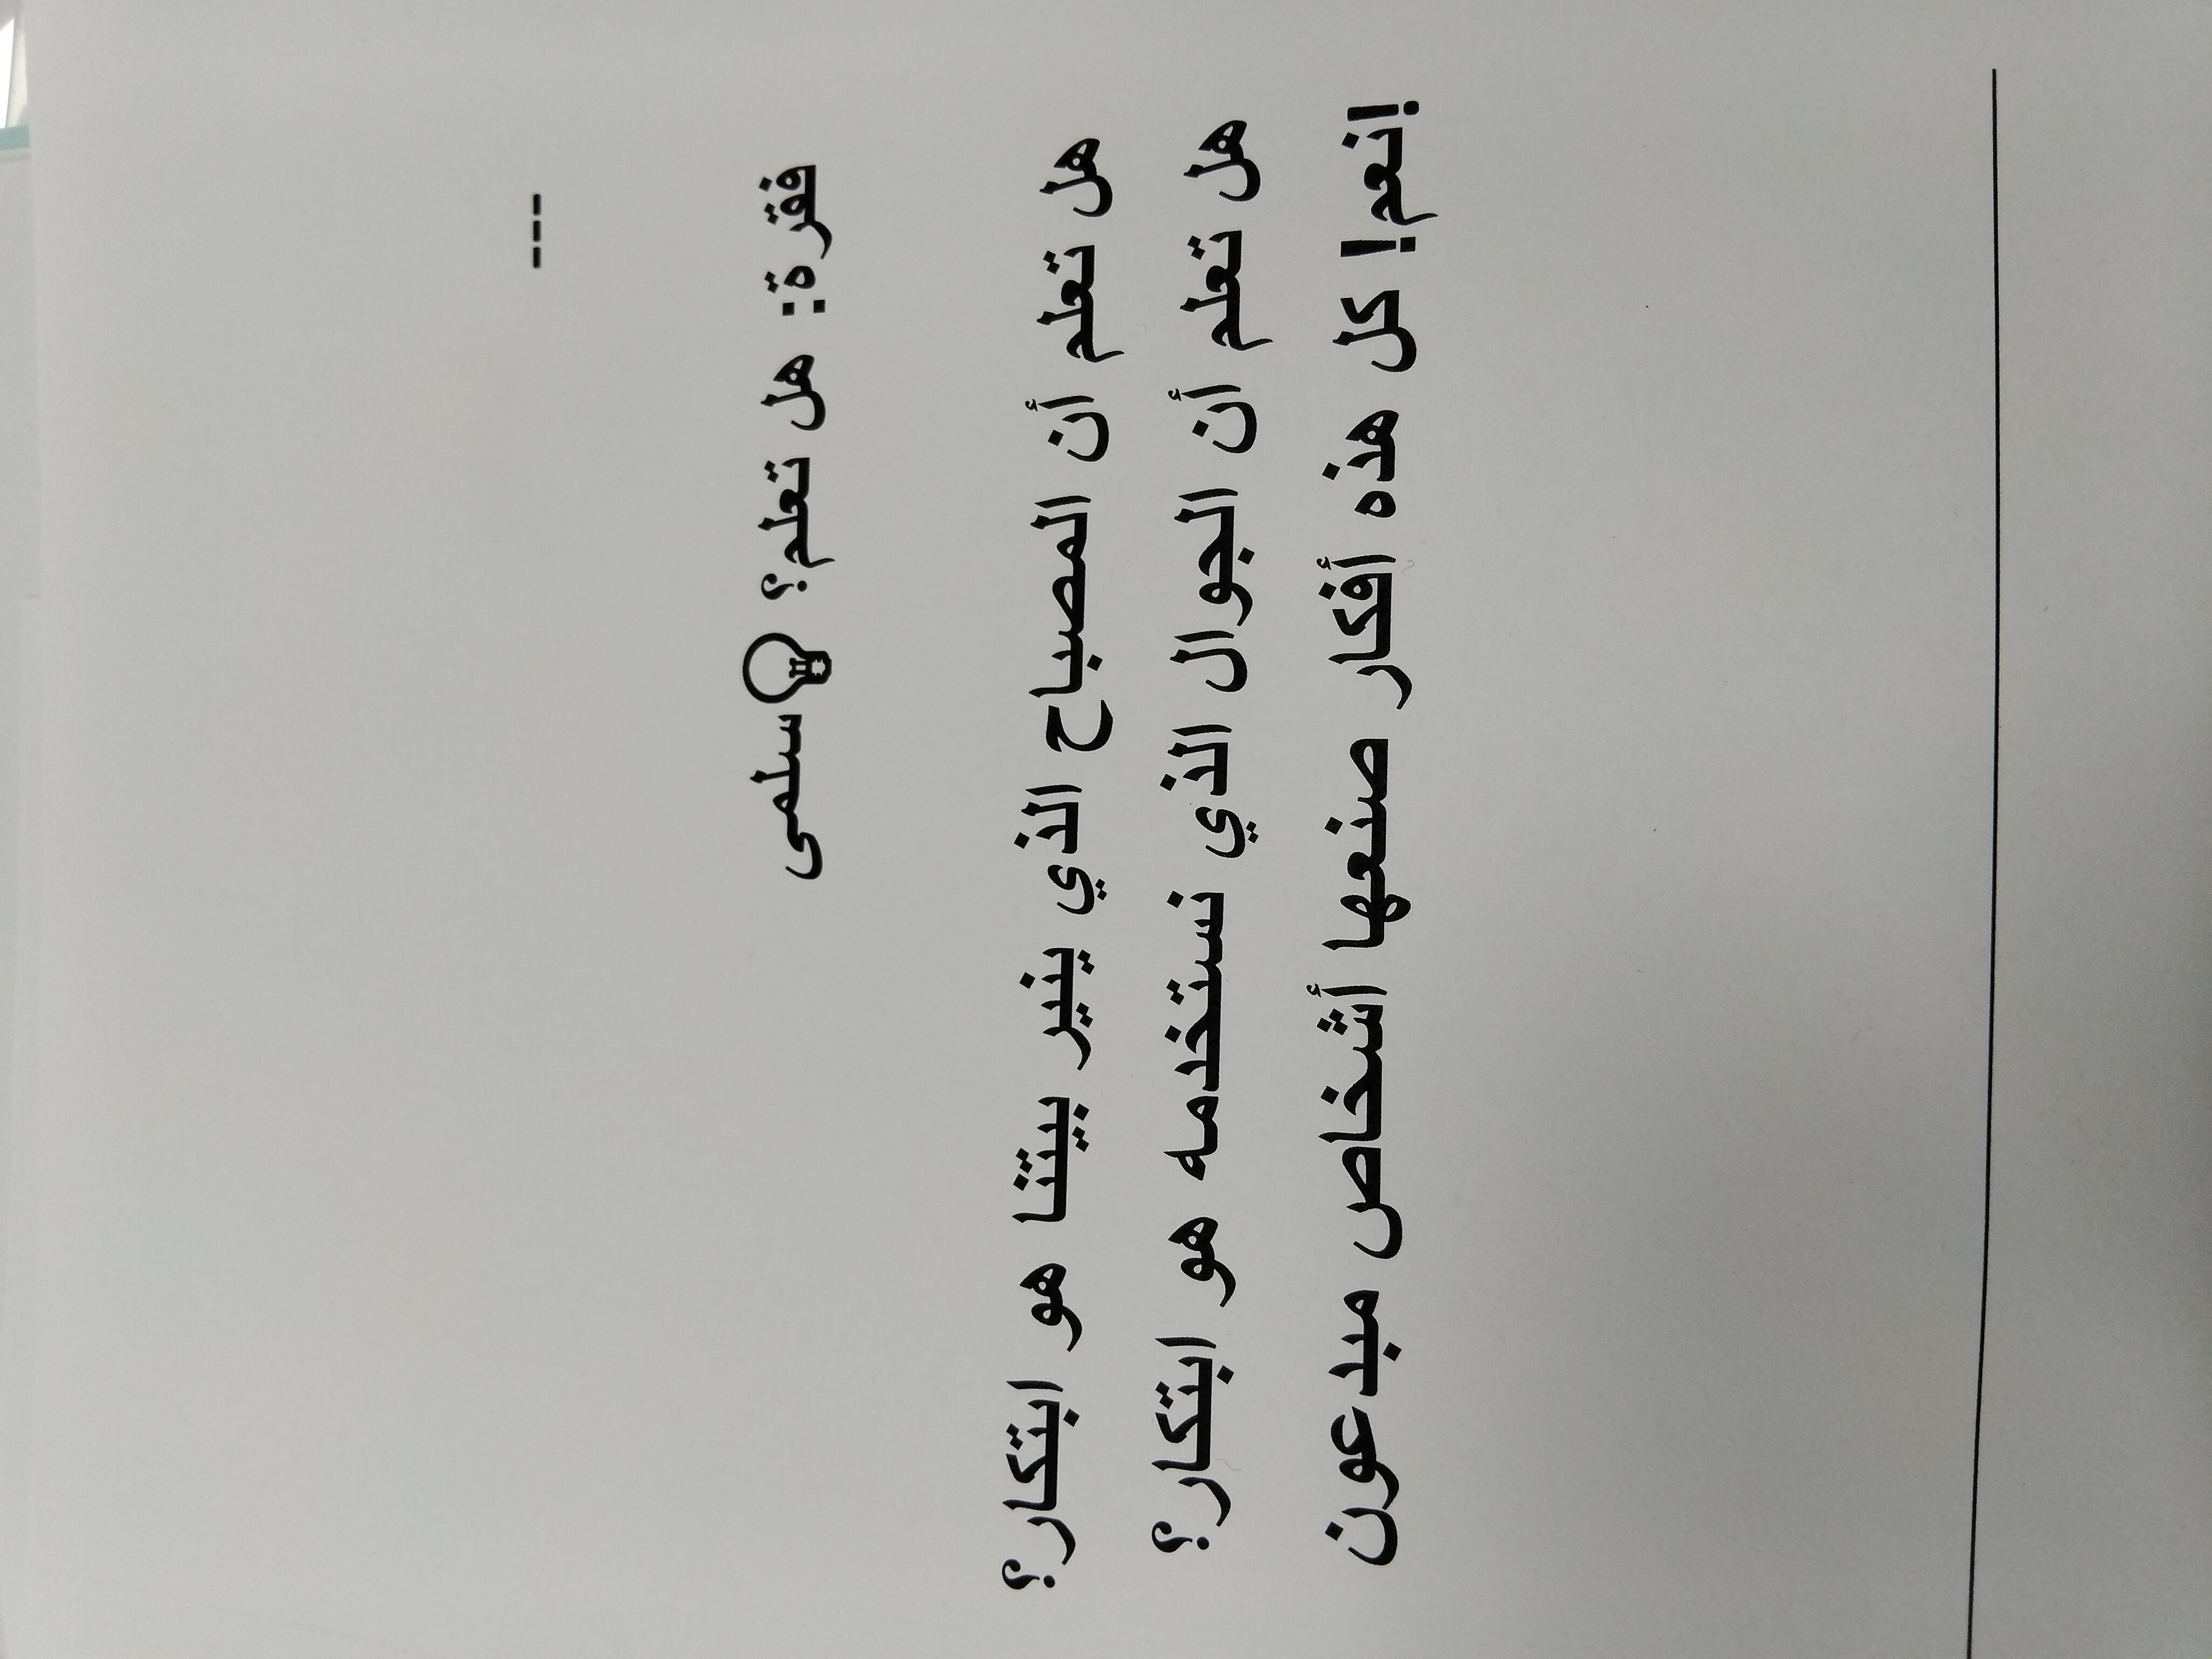 ---
فقرة: هل تعلم؟ 💡سلمى
هل تعلم أن المصباح الذي ينير بيتنا هو ابتكار؟
هل تعلم أن الجوال الذي نستخدمه هو ابتكار؟
!نعم! كل هذه أفكار صنعها أشخاص مبدعون